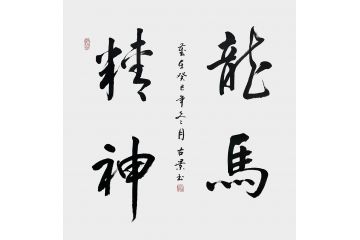 龍馬
精神
癸巳年冬月古